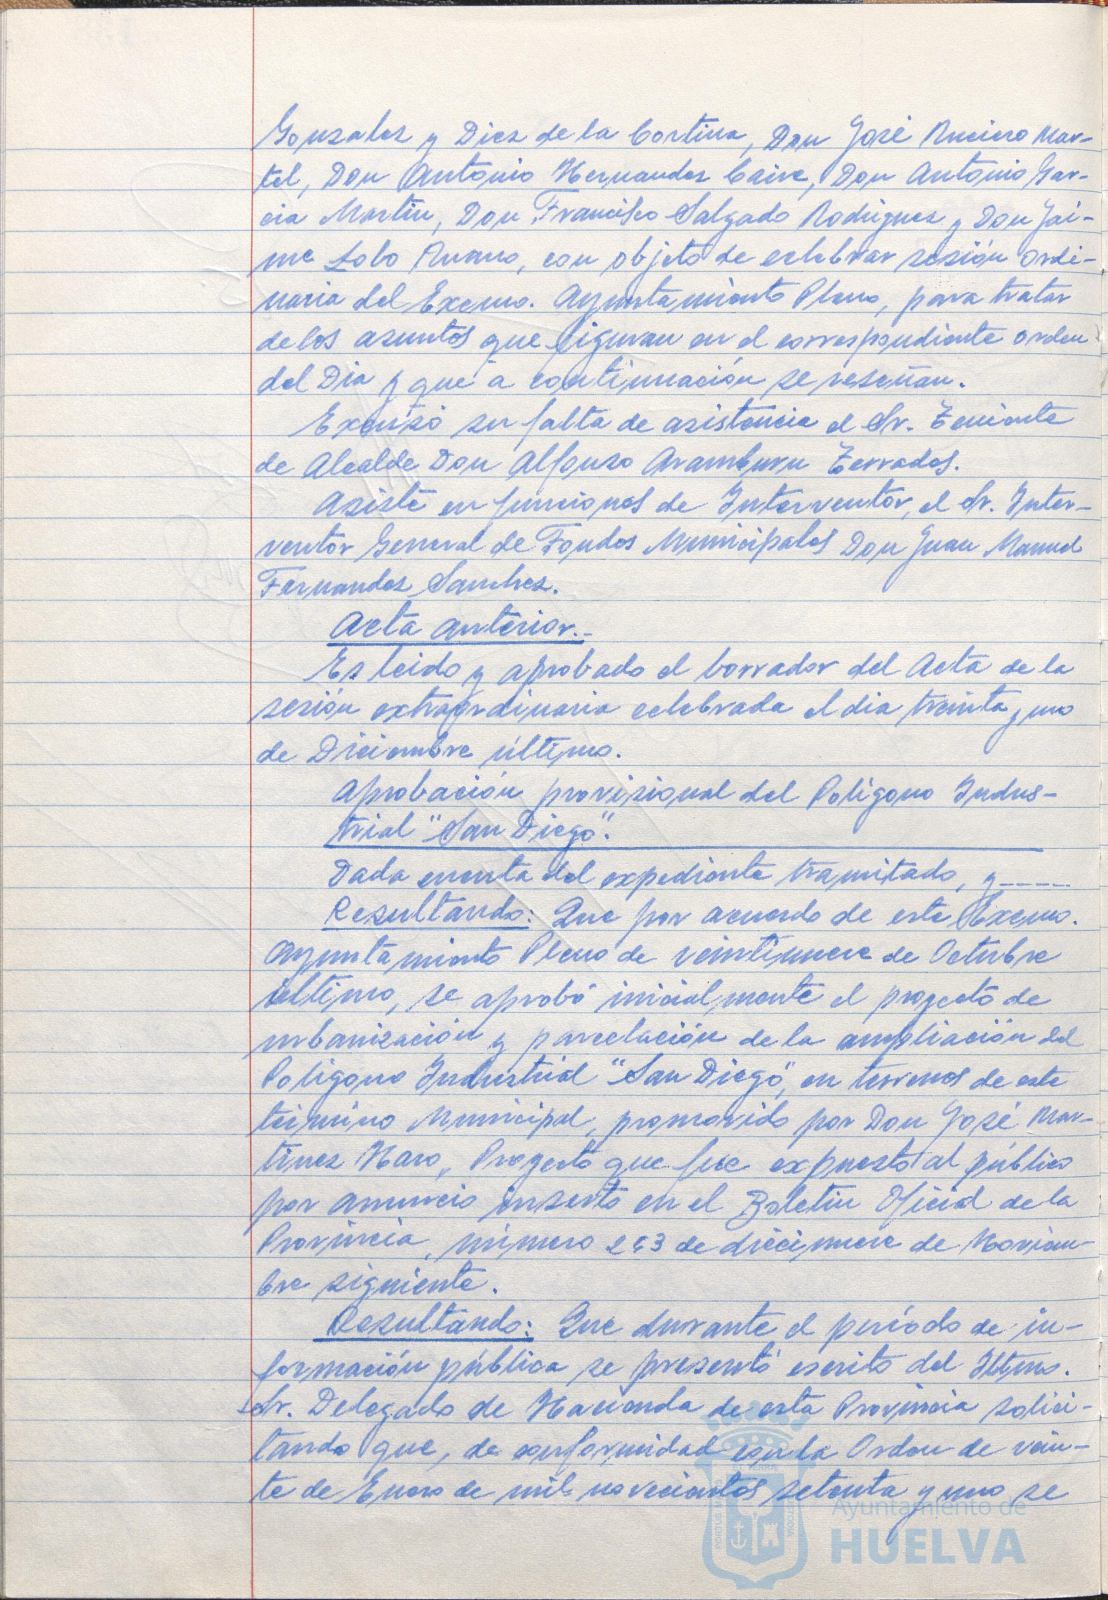 Gonzalez y Diez de la Cortina, Don José Ruciero Mar-
tel, Don Antonio Hernandez Caire, Don Antonio Gar-
cia Martin, Don Francisco Salgado Rodriguez y Don Jai-
me Lobo Ruano, con objeto de celebrar sesión ordi-
naria del Excmo. Ayuntamiento Pleno, para tratar
de los asuntos que figuran en el correspondiente orden
del Dia y que a continuación se reseñan.
Excusó su falta de asistencia el Sr. Teniente
de Alcalde Don Alfonso Aramburu Terrades.
Asiste en funciones de Interventor, el Sr. Inter-
ventor General de Fondos Municipales Don Juan Manuel
Fernandez Sanchez.
Acta anterior.-
Es leido y aprobado el borrador del Acta de la
sesión extraordinaria celebrada el dia treinta y uno
de Diciembre último.
Aprobación provisional del Poligono Indus-
trial "San Diego".
Dada cuenta del expediente tramitado, y-----
Resultando: Que por acuerdo de este Excmo.
Ayuntamiento Pleno de veintinueve de Octubre
último, se aprobó inicialmente el proyecto de
urbanización y parcelación de la ampliación del
Poligono Industrial "San Diego", en terrenos de este
término Municipal, promovido por Don José Mar-
tinez Haro, Proyecto que fue expuesto al público
por anuncio inserto en el Boletin Oficial de la
Provincia, número 263 de diecinueve de Noviem-
bre siguiente.
Resultando: Que durante el período de in-
formación pública se presentó escrito del Iltmo.
Sr. Delegado de Hacienda de esta Provincia solici-
tando que, de conformidad con la Orden de vein-
te de Enero de mil novecientos setenta y uno se
Ayuntamiento de
HUELVA